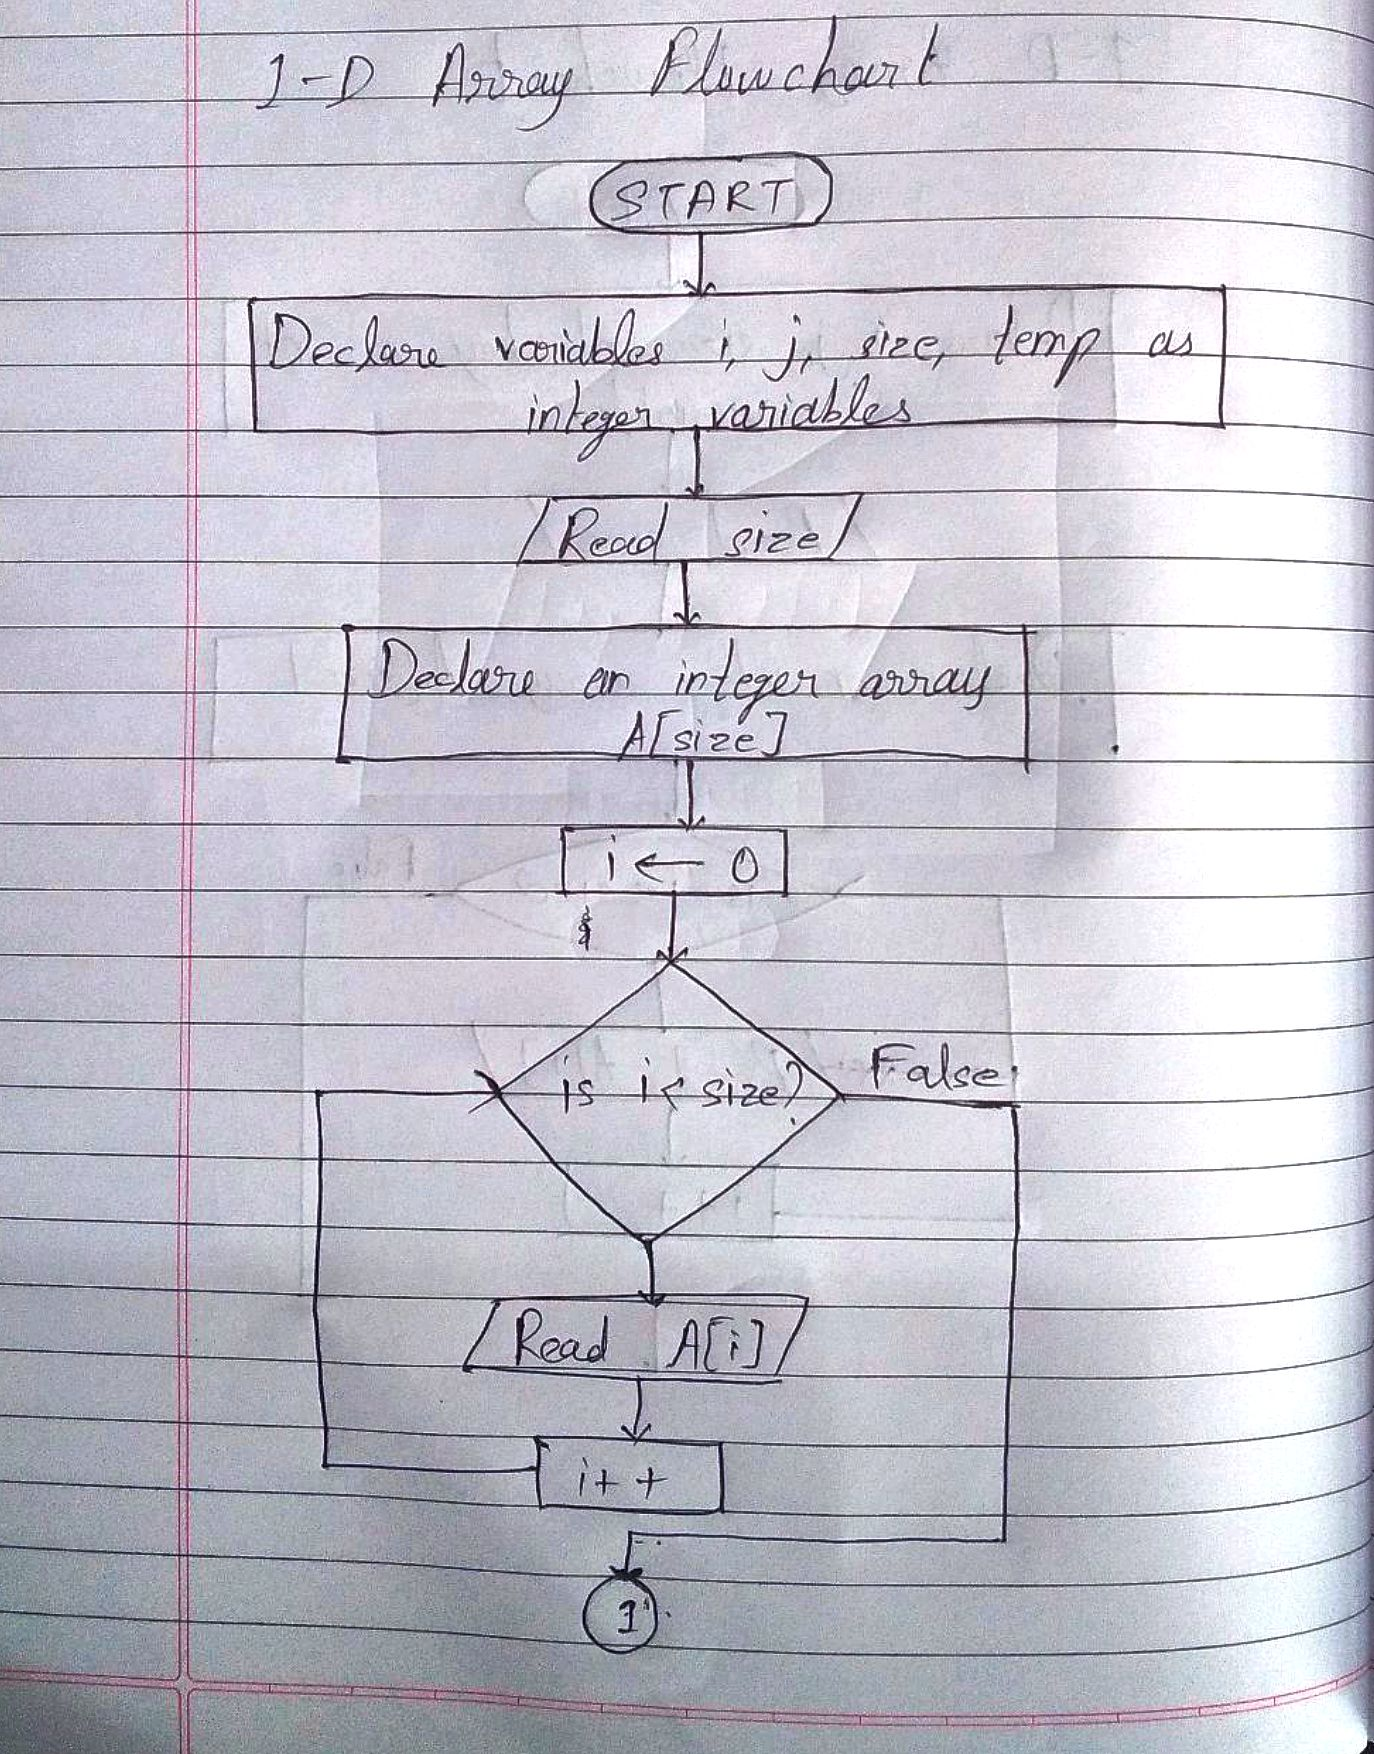 1-D Array Flowchart
START
Declare variables i, j, size, temp as
integer variables
Read size
Declare an integer array
A[size]
i ← 0
is i < size?
False
Read A[i]
i++
1